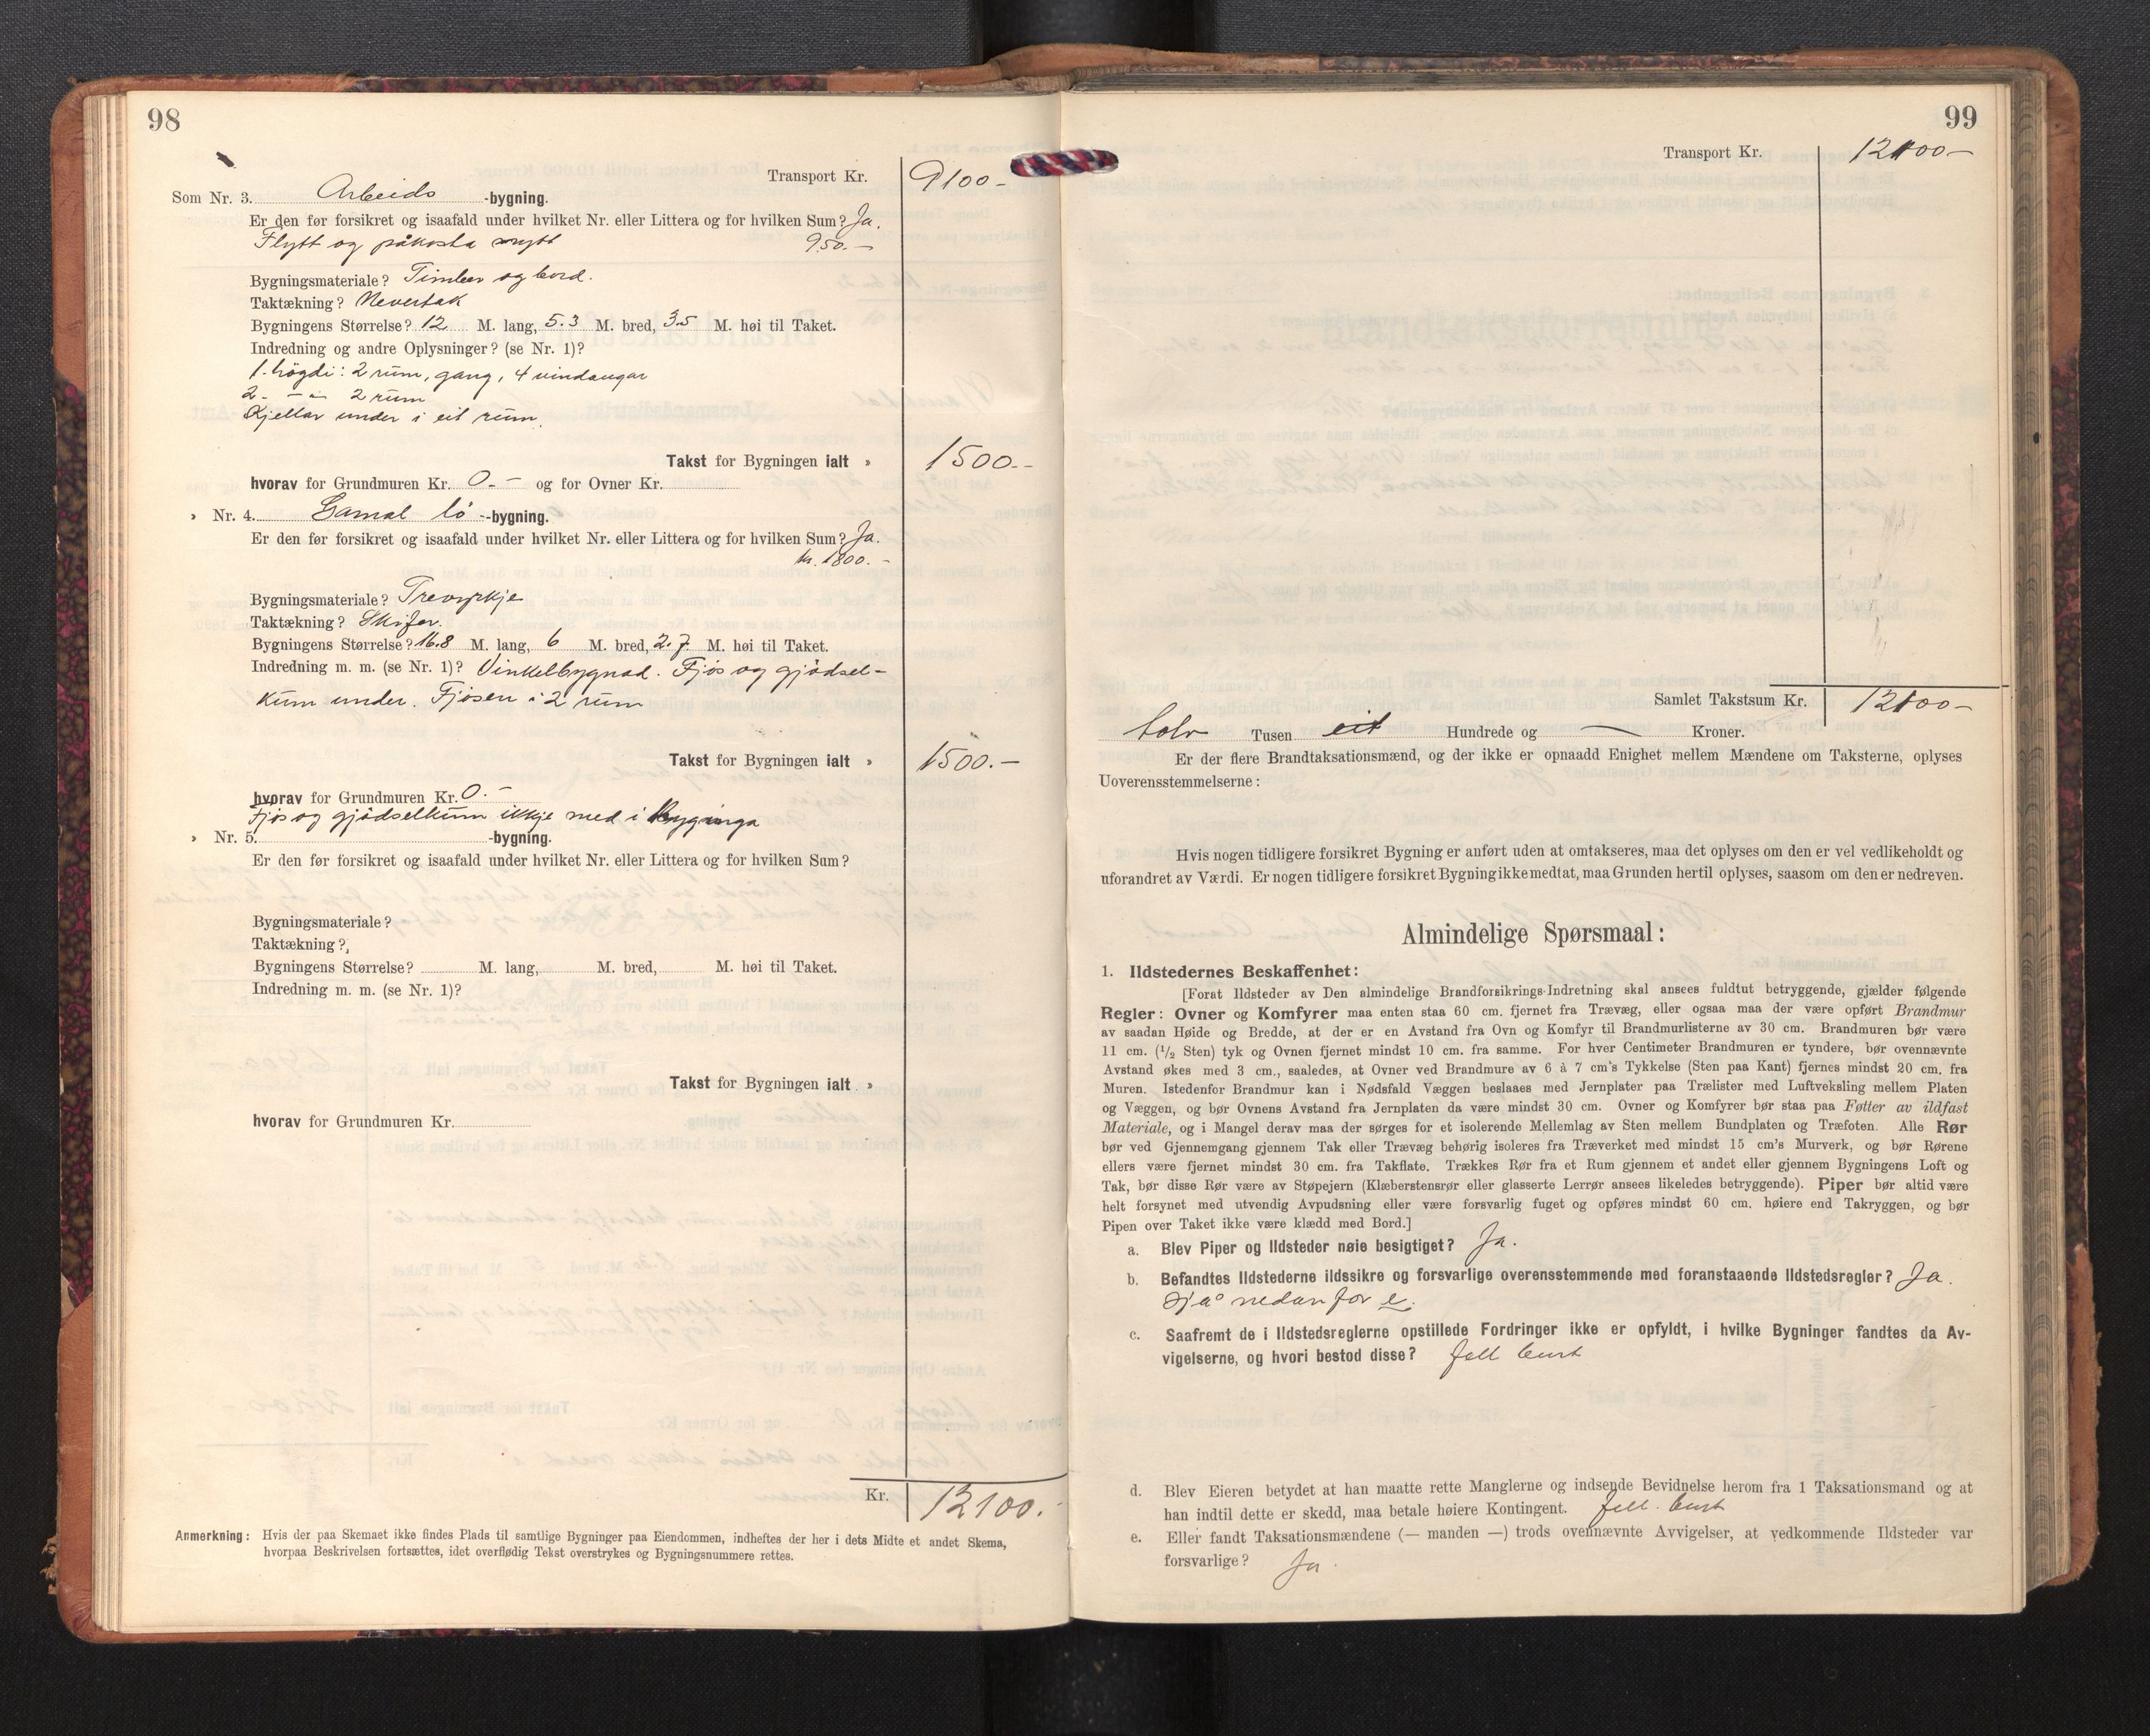 98
Transport Kr. 9100.-
Som Nr. 3. Arbeids -bygning.
Er den før forsikret og isaafald under hvilket Nr. eller Littera og for hvilken Sum? Ja.
Flytt og påkosta nytt 950.-
Bygningsmateriale? Timber og bord.
Taktækning? Nevertak
Bygningens Størrelse? 12 M. lang, 5.3 M. bred, 3.5 M. høi til Taket.
Indredning og andre Oplysninger? (se Nr. 1)?
1. högdi: 2 rum, gang, 4 vindaugar
2. -"- 2 rum
Kjellar under i eit rum.
Takst for Bygningen ialt » 1500.-
hvorav for Grundmuren Kr. 0.- og for Ovner Kr.
» Nr. 4. Gamal lö -bygning.
Er den før forsikret og isaafald under hvilket Nr. eller Littera og for hvilken Sum? Ja.
kr. 1800.-
Bygningsmateriale? Trevyrkje
Taktækning? Skifer.
Bygningens Størrelse? 16.8 M. lang, 6 M. bred, 2.7 M. høi til Taket.
Indredning m. m. (se Nr. 1)? Vinkelbygnad. Fjös og gjödsel-
kum under. Fjösen i 2 rum
Takst for Bygningen ialt » 1500.-
hvorav for Grundmuren Kr. 0.-
Fjös og gjödselkum ikkje med i trygginga
» Nr. 5. -bygning.
Er den før forsikret og isaafald under hvilket Nr. eller Littera og for hvilken Sum?
Bygningsmateriale?
Taktækning?
Bygningens Størrelse? M. lang, M. bred, M. høi til Taket.
Indredning m. m. (se Nr. 1)?
Takst for Bygningen ialt »
hvorav for Grundmuren Kr.
Kr. 12100.-
Anmerkning: Hvis der paa Skemaet ikke findes Plads til samtlige Bygninger paa Eiendommen, indheftes der her i dets Midte et andet Skema,
hvorpaa Beskrivelsen fortsættes, idet overflødig Tekst overstrykes og Bygningsnummere rettes.
99
Transport Kr. 12100-
Samlet Takstsum Kr. 12100-
tolv Tusen eit Hundrede og — Kroner.
Er der flere Brandtaksationsmænd, og der ikke er opnaadd Enighet mellem Mændene om Taksterne, oplyses
Uoverensstemmelserne:
Hvis nogen tidligere forsikret Bygning er anført uden at omtakseres, maa det oplyses om den er vel vedlikeholdt og
uforandret av Værdi. Er nogen tidligere forsikret Bygning ikke medtat, maa Grunden hertil oplyses, saasom om den er nedreven.
Almindelige Spørsmaal:
1. Ildstedernes Beskaffenhet:
[Forat Ildsteder av Den almindelige Brandforsikrings-Indretning skal ansees fuldtut betryggende, gjælder følgende
Regler: Ovner og Komfyrer maa enten staa 60 cm. fjernet fra Trævæg, eller ogsaa maa der være opført Brandmur
av saadan Høide og Bredde, at der er en Avstand fra Ovn og Komfyr til Brandmurlisterne av 30 cm. Brandmuren bør være
11 cm. (1/2 Sten) tyk og Ovnen fjernet mindst 10 cm. fra samme. For hver Centimeter Brandmuren er tyndere, bør ovennævnte
Avstand økes med 3 cm., saaledes, at Ovner ved Brandmure av 6 à 7 cm's Tykkelse (Sten paa Kant) fjernes mindst 20 cm. fra
Muren. Istedenfor Brandmur kan i Nødsfald Væggen beslaaes med Jernplater paa Trælister med Luftveksling mellem Platen
og Væggen, og bør Ovnens Avstand fra Jernplaten da være mindst 30 cm. Ovner og Komfyrer bør staa paa Føtter av ildfast
Materiale, og i Mangel derav maa der sørges for et isolerende Mellemlag av Sten mellem Bundplaten og Træfoten. Alle Rør
bør ved Gjennemgang gjennem Tak eller Trævæg behørig isoleres fra Træverket med mindst 15 cm's Murverk, og bør Rørene
ellers være fjernet mindst 30 cm. fra Takflate. Trækkes Rør fra et Rum gjennem et andet eller gjennem Bygningens Loft og
Tak, bør disse Rør være av Støpejern (Klæberstensrør eller glasserte Lerrør ansees likeledes betryggende). Piper bør altid være
helt forsynet med utvendig Avpudsning eller være forsvarlig fuget og opføres mindst 60 cm. høiere end Takryggen, og bør
Pipen over Taket ikke være klædd med Bord.]
a. Blev Piper og Ildsteder nøie besigtiget? Ja.
b. Befandtes Ildstederne ildssikre og forsvarlige overensstemmende med foranstaaende Ildstedsregler? Ja.
Sjå nedanfor e.
c. Saafremt de i Ildstedsreglerne opstillede Fordringer ikke er opfyldt, i hvilke Bygninger fandtes da Av-
vigelserne, og hvori bestod disse? fell burt
d. Blev Eieren betydet at han maatte rette Manglerne og indsende Bevidnelse herom fra 1 Taksationsmand og at
han indtil dette er skedd, maa betale høiere Kontingent. fell burt
e. Eller fandt Taksationsmændene (— manden —) trods ovennævnte Avvigelser, at vedkommende Ildsteder var
forsvarlige? Ja.